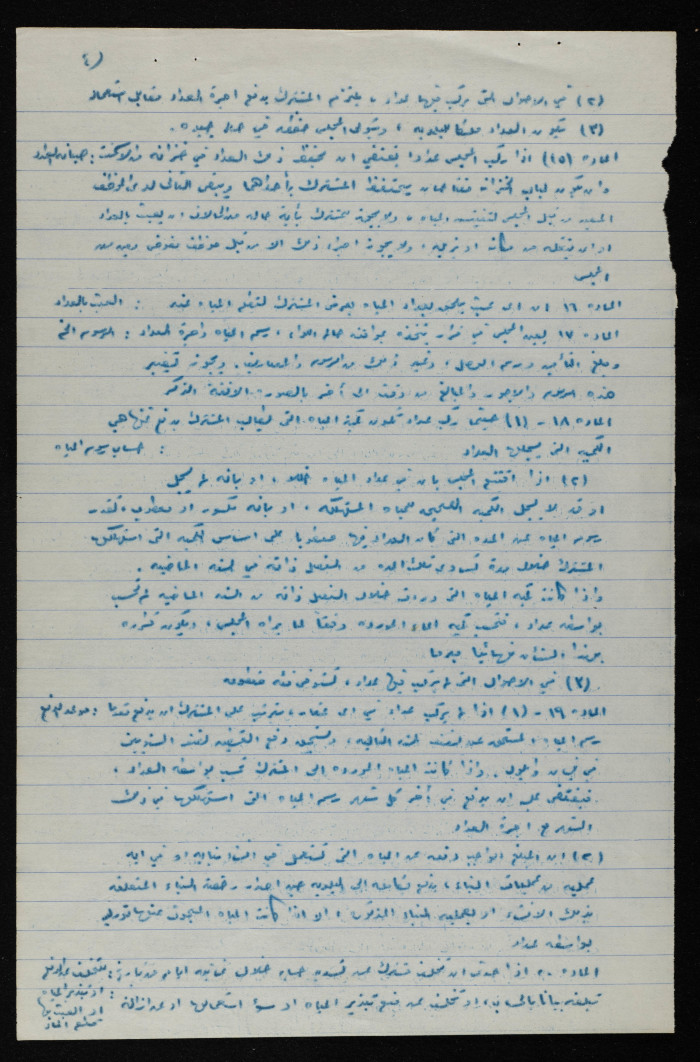 (٤
(٢) في الاحوال التي يركب فيها عداد ، يلتزم المشترك بدفع اجرة العداد مقابل استعماله
(٣) تكون العداد ملكا للبلدية ، ويتولى المجلس حفظه في حالة جيدة .
المادة (١٥) اذا ركب المجلس عدادا يقتضي ان يحفظ ذلك العداد في خزانة : صيانة العداد
وان تكون لباب الخزانة مفتاحان يحتفظ المشترك بأحداهما ويبقى الثاني لدى الموظف
المعين من قبل المجلس لتفتيش المياه ، ولا يجوز للمشترك بأية حالة من الحالات ان يعبث بالعداد
او ان ينقله من مكانه او يزيله ، ولا يجوز اجراء ذلك الا من قبل موظف مفوض من
المجلس
المادة ١٦ ان اي عبث يلحق بعداد المياه يعرض المشترك لقطع المياه عنه : العبث بالعداد
المادة ١٧ يعين المجلس في قرار يتخذه بموافقة حاكم اللواء ، رسم المياه واجرة العداد : الرسوم الخ
ومبلغ التأمين ورسم الوصل ، وغير ذلك من الرسوم والمصاريف . ويجوز تغيير
هذه الرسوم والاجور والمبالغ من وقت الى آخر بالصورة الآنفة الذكر
المادة ١٨ - (١) حيثما ركب عداد تكون كمية المياه التي يطالب المشترك بدفع ثمنها هي
الكمية التي يسجلها العداد : حساب رسوم المياه
(٢) اذا اقتنع المجلس بان في عداد المياه خللا ، او بانه لم يسجل
او قد لا يسجل الكمية الصحيحة للمياه المستهلكة ، او بانه مكسور او معطوب ، تقدر
رسوم المياه عن المدة التي كان العداد فيها معطوبا على اساس الكمية التي استهلكها
المشترك خلال مدة تساوي تلك المدة من الفصل ذاته في السنة الماضية .
واذا كانت كمية المياه التي وردت خلال الفصل ذاته من السنة الماضية لم تحسب
بواسطة عداد ، فتحسب كمية الماء الموردة وفقا لما يراه المجلس ، ويكون قراره
بهذا الشأن نهائيا مبرما
(٣) في الاحوال التي لم يركب فيها عداد ، تستوفى فئة مقطوعة
المادة ١٩ - (١) اذا لم يركب عداد في اي عقار ، يترتب على المشترك ان يدفع مقدما : موعد الدفع
رسم المياه المستحق عن السنة التالية ، ويستحق دفع القسطين النصف السنويين
في نيسان وايلول . واذا كانت المياه الموردة الى المشترك تحسب بواسطة العداد ،
فيقتضى عليه ان يدفع في آخر كل شهر رسم المياه التي استهلكها في ذلك
الشهر مع اجرة العداد
(٢) ان المبلغ الواجب دفعه عن المياه التي تستعمل في انشاء بناية او في اية
عملية من عمليات البناء ، يدفع سلفا الى البلدية حين اصدار رخصة البناء المتعلقة
بذلك الانشاء او بعملية البناء المذكورة ، الا اذا كانت المياه المبحوث عنها تورد
بواسطة عداد
المادة ٢٠ اذا حدث ان تخلف مشترك عن تسديد حسابه خلال ثمانية ايام من تاريخ : التخلف عن الدفع
تبليغه بيانا بالحساب ، او تخلف عن منع تبذير المياه او سوء استعمالها او عن ازالة : او تبذير المياه
او العبث بها